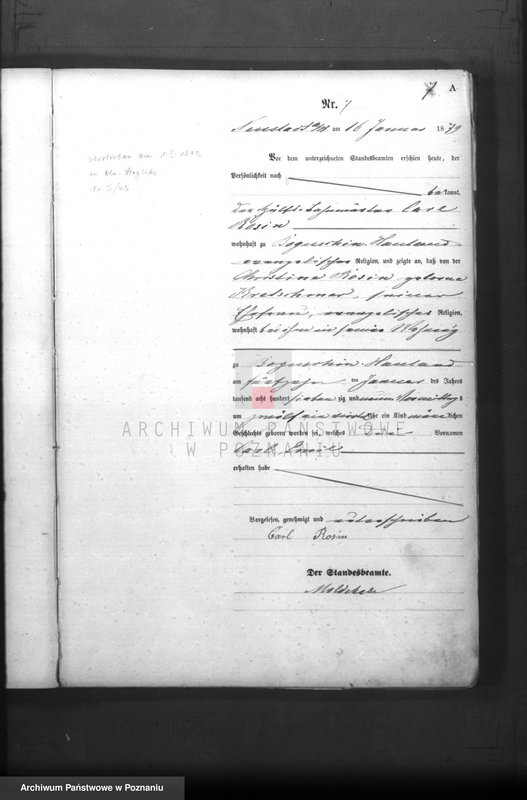 7 A
Nr. 7
Neustadt a/W am 16 Januar 1879
Vor dem unterzeichneten Standesbeamten erschien heute, der
Persönlichkeit nach
bekannt,
der Carl
Rosin
wohnhaft zu Boguschin Hauland
evangelischer Religion, und zeigte an, daß von der
Christina Rosin geborene
Kretschmer, seiner
Ehefrau, evangelischer Religion,
wohnhaft bei ihm in seiner Wohnung
zu Boguschin Hauland
am fünfzehn ten Januar des Jahres
tausend acht hundert sieben zig und neun Vormittags
um zwölf ein viertel Uhr ein Kind männlichen
Geschlechts geboren worden sei, welches Vornamen
Carl Emil
erhalten habe
Vorgelesen, genehmigt und unterschrieben
Carl Rosin
Der Standesbeamte.
verstorben am
ARCHIWUM PAŃSTWOWE
W POZNANIU
Archiwum Państwowe w Poznaniu